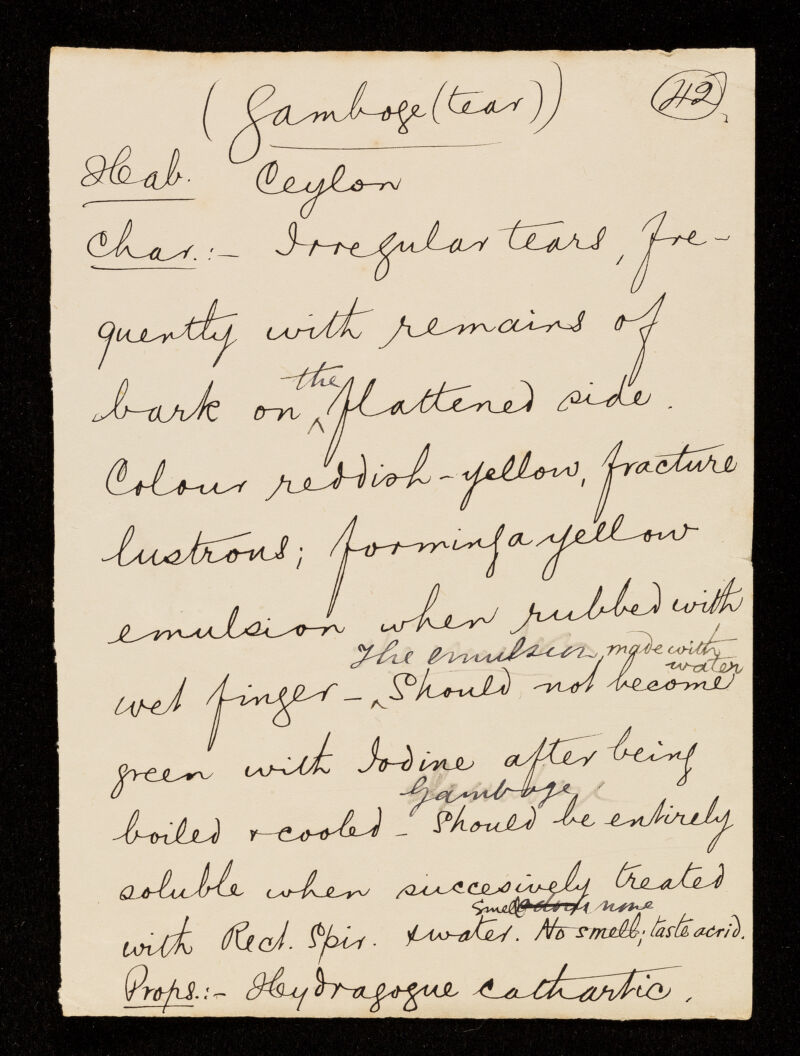 (Gamboge (tear)) 42
Hab. Ceylon
Char.:- Irregular tears, fre-
quently with remains of
the
bark on ^ flattened side.
Colour reddish-yellow, fracture
lustrous; forming a yellow
emulsion when rubbed with
The emulsion, made with
water
wet finger - ^ Should not become
green with Iodine after being
Gamboge
boiled & cooled - Should be entirely
soluble when succesively treated
Smell none
with Rect. Spir. & water. No smell; taste acrid.
Props.:- Hydragogue cathartic.